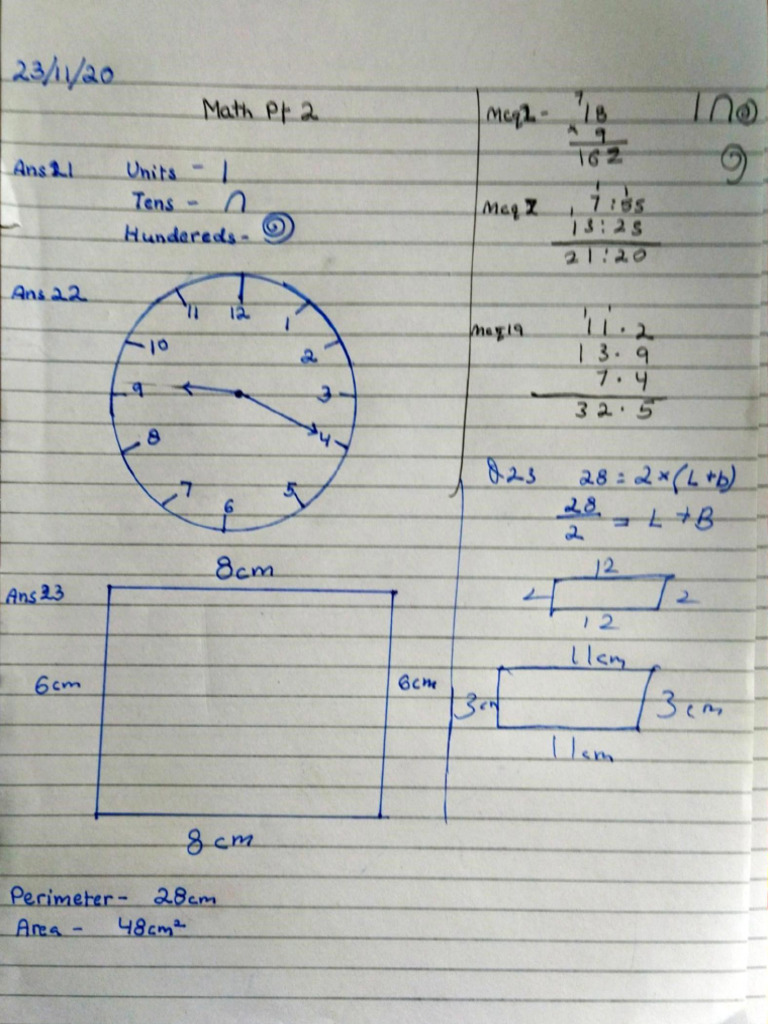 23/11/20
Math Pt 2
Ans 21 Units - |
Tens - ∩
Hundereds-
Ans 22
12
1
2
3
4
5
6
7
8
9
10
11
Ans 23
8cm
6cm
6cm
8 cm
Perimeter- 28cm
Area - 48cm²
Mcq 1- 7
18
× 9
162
|∩
Mcq
1 1
7:55
13:25
21:20
Mcq 19
1 1
11.2
13.9
7.4
32.5
Q.23 28 = 2×(L+b)
28/2 = L+B
12
2
2
12
11cm
3cm
3cm
11cm